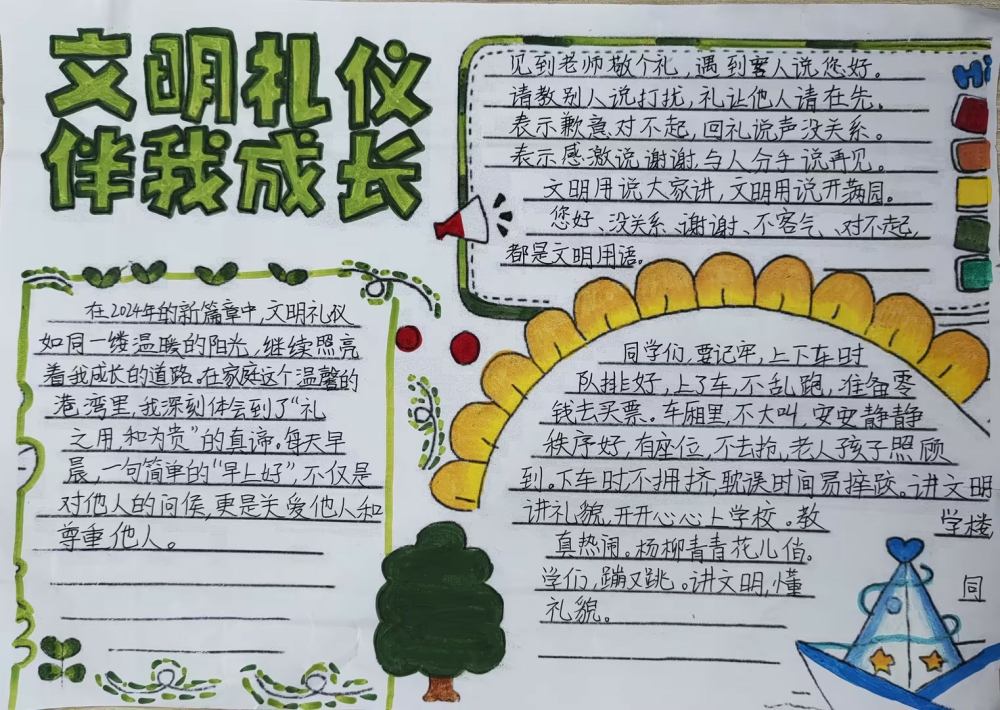 文明礼仪
伴我成长
Hi
见到老师敬个礼，遇到客人说您好。
请教别人说打扰，礼让他人请在先。
表示歉意对不起，回礼说声没关系。
表示感激说谢谢，与人分手说再见。
文明用说大家讲，文明用说开满园。
您好、没关系、谢谢、不客气、对不起，
都是文明用语。
在2024年的新篇章中，文明礼仪
如同一缕温暖的阳光，继续照亮
着我成长的道路。在家庭这个温馨的
港湾里，我深刻体会到了“礼
之用，和为贵”的真谛。每天早
晨，一句简单的“早上好”，不仅是
对他人的问候，更是关爱他人和
尊重他人。
同学们，要记牢，上下车时
队排好，上了车，不乱跑，准备零
钱去买票。车厢里，不大叫，安安静静
秩序好，有座位，不去抢，老人孩子照顾
到。下车时不拥挤，耽误时间易摔跤。讲文明
讲礼貌，开开心心上学校。教
学楼
真热闹。杨柳青青花儿俏。
同
学们，蹦又跳。讲文明，懂
礼貌。